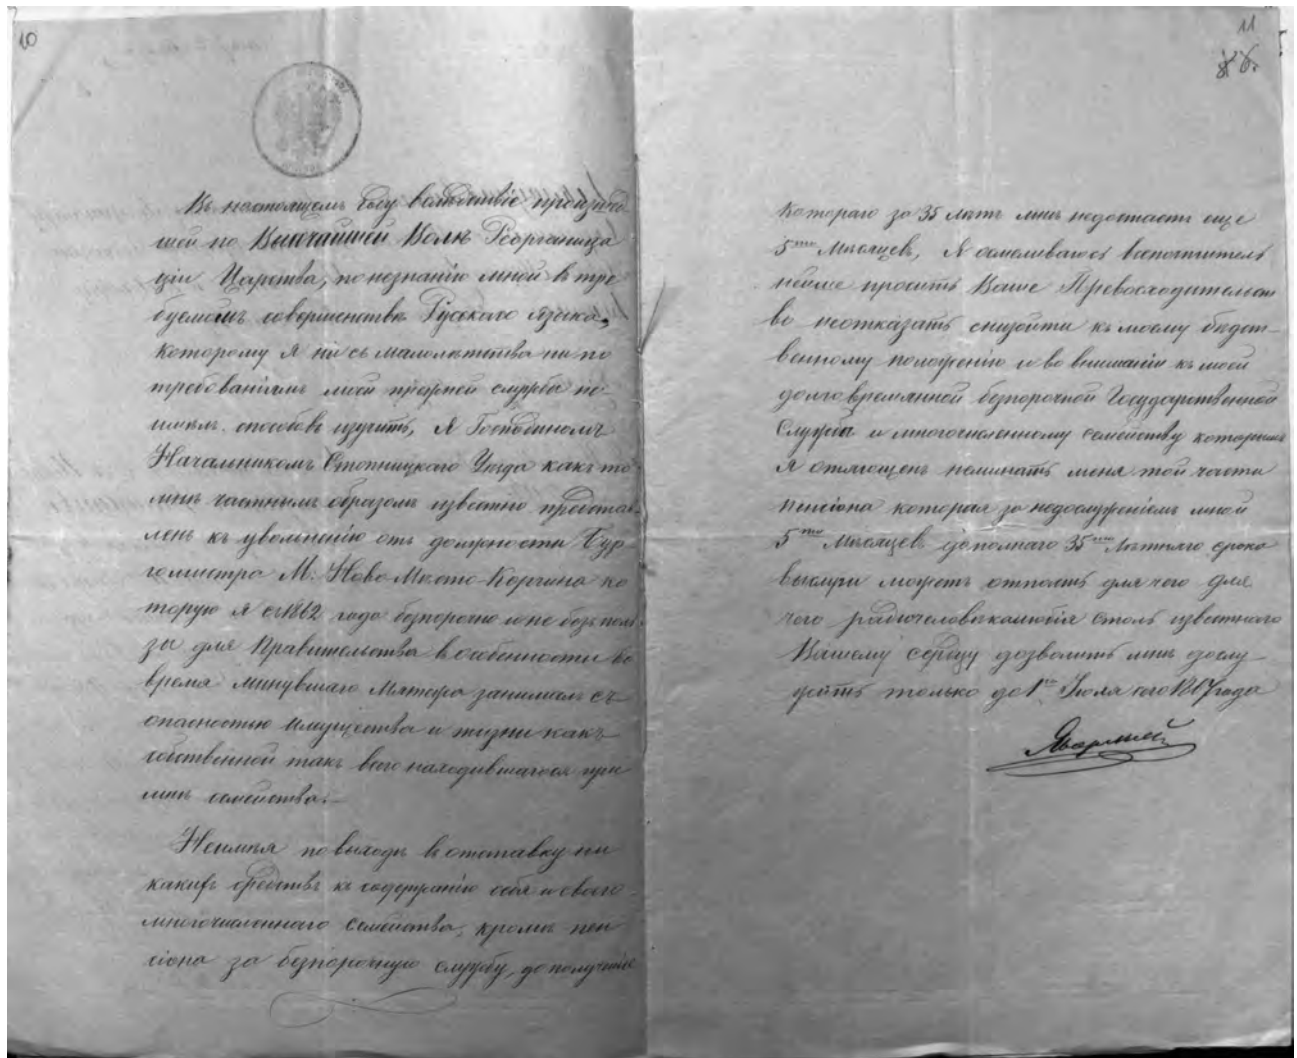 10
Въ настоящемъ году вслѣдствіе происшед
шей по Высочайшей Волѣ Реорганиза
ціи Царства, по незнанію мной въ тре
буемомъ совершенствѣ Русскаго языка,
которому я ни съ малолѣтства ни по
требованіямъ моей прежней службы не
имѣлъ способовъ изучить, я Господиномъ
Начальникомъ Стопницкаго Уѣзда какъ то
мнѣ частнымъ образомъ извѣстно представ
ленъ къ увольненію отъ должности Бур
гомистра М. Ново-Място-Корчина ко
торую я съ 1862 года безпорочно и не безъ поль
зы для Правительства въ особенности во
время минувшаго Мятежа занималъ съ
опасностью имущества и жизни какъ
собственной такъ всего находившагося при
мнѣ семейства.—
Неимѣя по выходѣ въ отставку ни
какихъ средствъ къ содержанію себя и своего
многочисленнаго семейства, кромѣ пен
сіона за безпорочную службу, до полученія
11
котораго за 35 лѣтъ мнѣ недостаетъ еще
5ти Мѣсяцев, Я осмеливаюсь всепочтитель
нѣйше просить Ваше Превосходительст
во неотказать снизойти къ моему бѣдст-
венному положенію и во вниманіи къ моей
долговремянной безпорочной Государственной
Службѣ и многочисленному семейству которымъ
я отягощенъ нелишать меня той части
пенсіона которая за недослуженіемъ мной
5ти Мѣсяцев. дополнаго 35ти Лѣтняго срока
выслуги можетъ отпасть для чего для
чего ради человѣколюбія столь извѣстнаго
Вашему сердцу дозволить мнѣ дослу-
жить только до 1го Іюля сего 1867 года